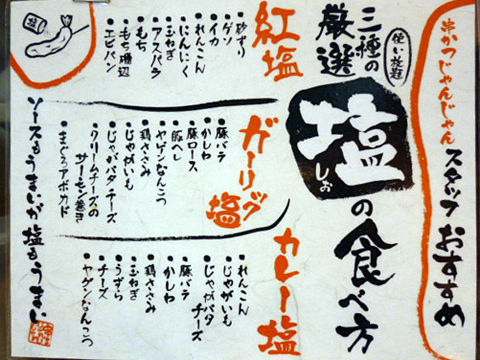 串かつじゃんじゃん
スタッフおすすめ
使い放題
三種の
厳選
塩
しお
の食べ方
紅塩
砂ずり
ゲソ
イカ
れんこん
にんにく
玉ねぎ
アスパラ
もち
もち磯辺
エビパン
ガーリック塩
豚バラ
かしわ
豚ロース
豚ヘレ
ヤゲンなんこつ
鶏ささみ
じゃがいも
じゃがバタチーズ
クリームチーズの
サーモン巻き
まぐろアボカド
カレー塩
れんこん
じゃがいも
じゃがバタ
チーズ
豚バラ
かしわ
鶏ささみ
玉ねぎ
うずら
チーズ
ヤゲンなんこつ
ソースもうまいが塩もうまい